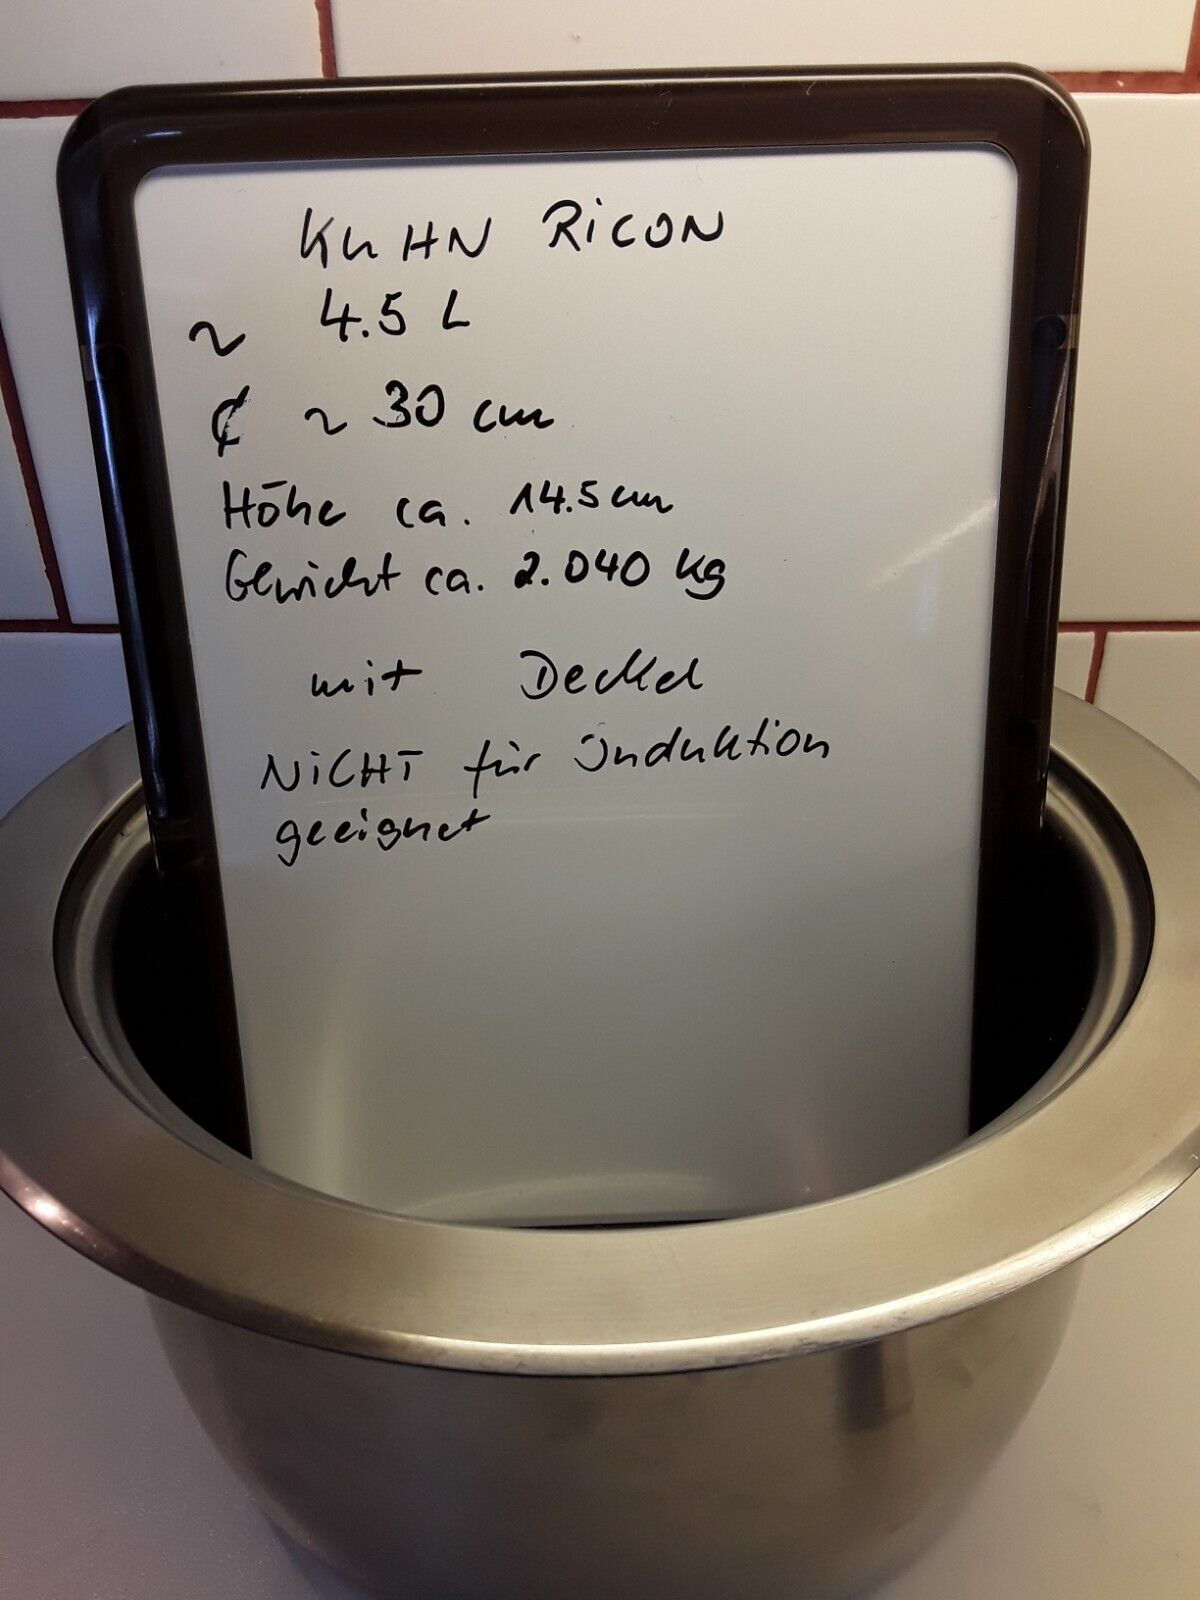 KUHN RiCON
~ 4.5 L
¢ ~ 30 cm
Höhe ca. 14.5 cm
Gewicht ca. 2.040 kg
mit Deckel
NiCHT für induktion
geeignet